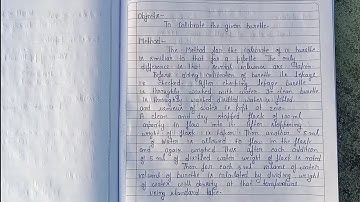 Objective:-
To Calibrate the given burette.
Method:-
The Method for the Calibrate of a burette
is similar to that for a pipette. The only
difference is that several volumes are taken
Before doing calibration of burette its leakage
is checked. After checking leakage burette
is thoroughly washed with water. The clean burette
is thoroughly washed distilled water is filled
and meniscus of water is left at zero.
A clean and dry stopped flask of 100ml
capacity is taken
weight of flask is taken. Then another 5 ml
of water is allowed to flow in the flask
and again weighed thus after each addition
of 5 ml of distilled water weight of flask is noted
Then for each 5 ml volume of water
volume of burette is calculated by dividing weight
of water with density at that temperature
using standard table.